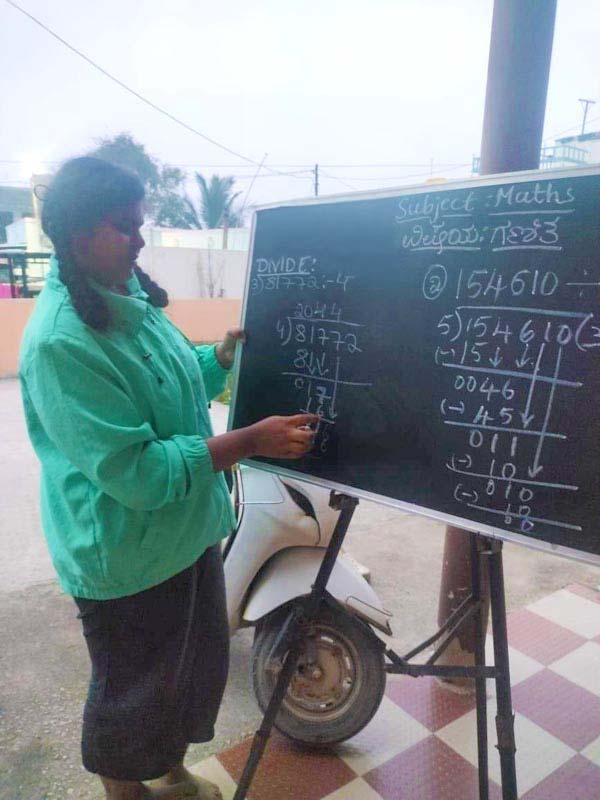 Subject : Maths
ವಿಷಯ: ಗಣಿತ
DIVIDE:
3) 81772 ÷ 4
2044
4) 81772
8
017
② 154610 ÷
5) 154610 (3
(-) 15
0046
(-) 45
011
(-) 10
010
(-) 10
00